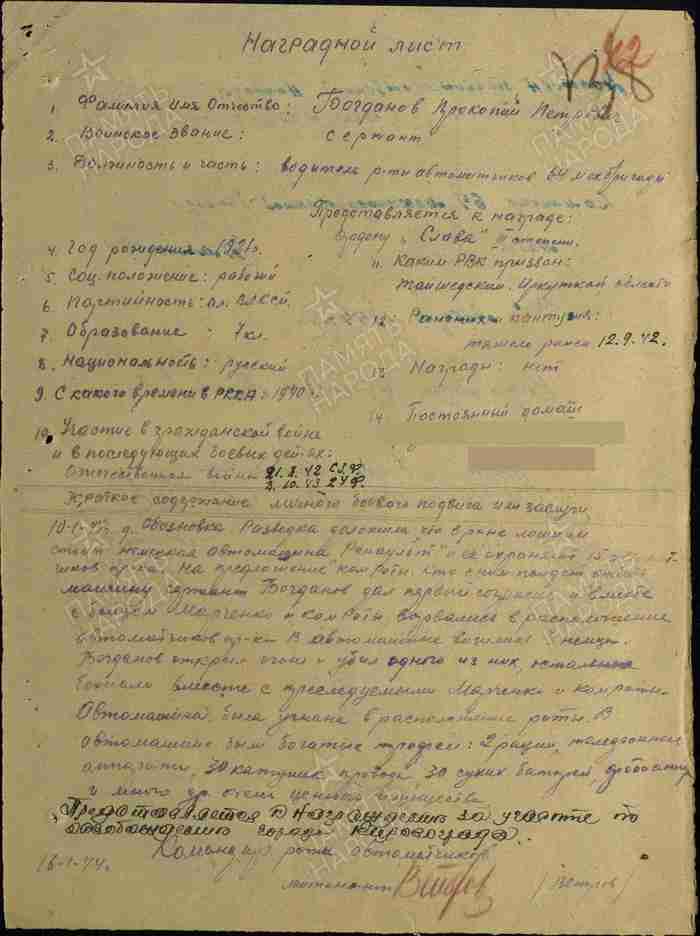 42
Наградной лист
1. Фамилия Имя Отчество: Богданов Прокопий Петрович
2. Воинское Звание: сержант
3. Должность и часть: водитель р-ты автоматчиков 64 мехбригады
Представляется к награде:
Ордену "Слава" III степени.
4. Год рождения 1921г.
5. Соц. положение: рабочий
6. Партийность: чл. ВЛКСМ.
7. Образование: 7 кл.
8. Национальность: русский
9. С какого времени в РККА: 1940 г.
10. Участие в гражданской войне
и в последующих боевых действ:
Отечественная война 21.8.42 СЗФ.
2.10.43 2УФ.
11. Каким РВК призван:
Тайшетским Иркутской области
12. Ранения и контузия:
тяжело ранен 12.9.42.
13 Награды: нет
14 Постоянный домаш
Краткое содержание личного боевого подвига или заслуги
10-1-44г. д. Обозновка. Разведка доложила, что в
стоит немецкая автомашина и ее охраняет 15 автомат-
чиков пр-ка. На предложение ком роты, кто с ним пойдет
машину сержант Богданов дал первый согласие и вместе
с бойцом Марченко и ком роты ворвались в расположение
автоматчиков пр-ка. В автомашине немцы.
Богданов открыл огонь и убил одного из них, остальные
бежали вместе с преследуемыми Марченко и ком роты.
Автомашина была угнана в расположение роты. В
автомашине были богатые трофеи: 2 рации, телефонные
аппараты, 30 катушек провода 30 сухих батарей,
и много др. очень ценного имущества.
Представляется к награждению за участие по
освобождению города Кировограда.
Командир роты автоматчиков
16-1-44г.
лейтенант Ветров (Ветров)
ПАМЯТЬ НАРОДА